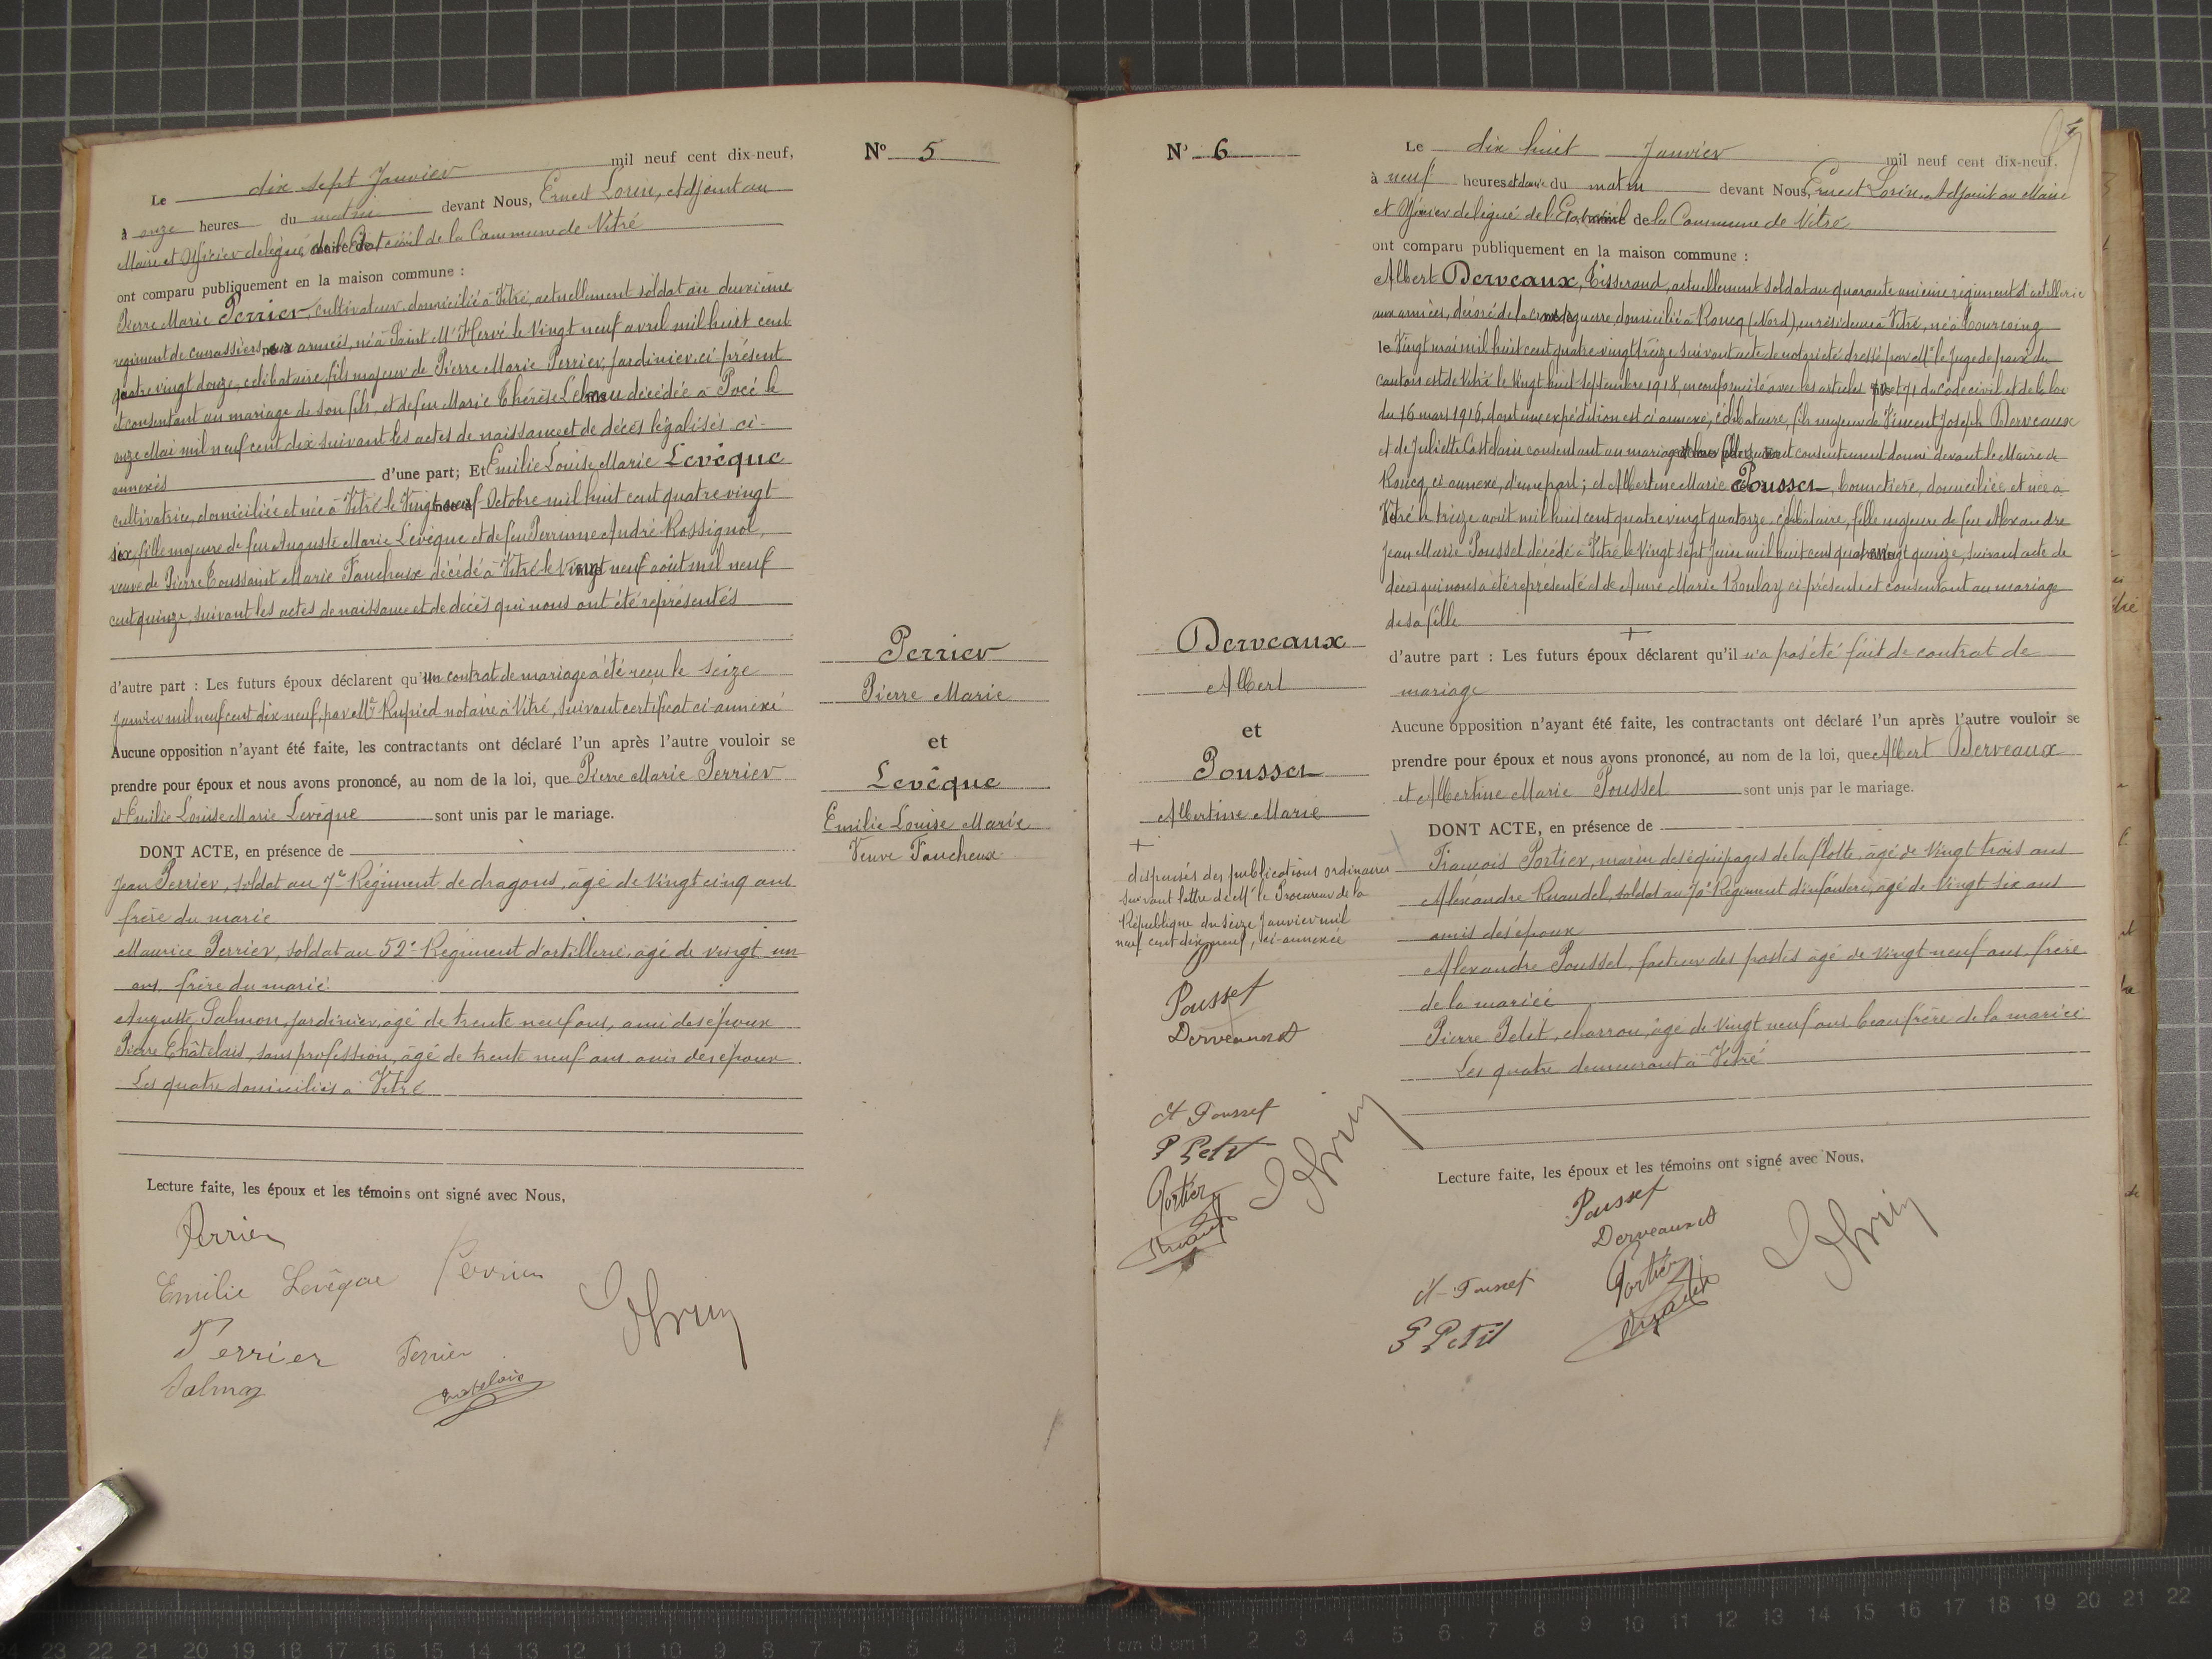 Le dix sept Janvier mil neuf cent dix-neuf,
à onze heures du matin devant Nous, Ernest Lorin, Adjoint au
Maire et Officier délégué de l'Etat civil de la Commune de Vitré
ont comparu publiquement en la maison commune :
Pierre Marie Perrier, cultivateur, domicilié à Vitré, actuellement soldat au deuxième
régiment de cuirassiers, aux armées, né à Saint M'Hervé le Vingt neuf avril mil huit cent
quatre vingt douze, célibataire, fils majeur de Pierre Marie Perrier, Jardinier, ci-présent
et consentant au mariage de son fils, et de feu Marie Thérèse décédée à Pocé le
onze Mai mil neuf cent dix suivant les actes de naissance et de décès légalisés ci-
annexés d'une part; Et Emilie Louise Marie Levêque
cultivatrice, domiciliée et née à Vitré le Vingt neuf Octobre mil huit cent quatre vingt
six, fille majeure de feu Auguste Marie Levêque et de feu Perrinne André Rossignol,
veuve de Pierre Toussaint Marie Faucheux décédé à Vitré le Vingt neuf août mil neuf
cent quinze, suivant les actes de naissance et de décès qui nous ont été représentés
d'autre part : Les futurs époux déclarent qu'un contrat de mariage a été reçu le seize
Janvier mil neuf cent dix neuf, par Me Rupied notaire à Vitré, suivant certificat ci-annexé
Aucune opposition n'ayant été faite, les contractants ont déclaré l'un après l'autre vouloir se
prendre pour époux et nous avons prononcé, au nom de la loi, que Pierre Marie Perrier
et Emilie Louise Marie Levêque sont unis par le mariage.
DONT ACTE, en présence de
Jean Perrier, soldat au 7e Régiment de dragons, âgé de Vingt cinq ans
frère du marié
Maurice Perrier, soldat au 52e Régiment d'artillerie, âgé de vingt un
ans, frère du marié.
Auguste Salmon, jardinier, âgé de trente neuf ans, ami des époux
Pierre Châtelais, sans profession, âgé de trente neuf ans, ami des époux.
Les quatre domiciliés à Vitré
Lecture faite, les époux et les témoins ont signé avec Nous,
Perrier
Emilie Levêque Perrier
Perrier Perrier
Salmon Chatelais
N° 5
Perrier
Pierre Marie
et
Levêque
Emilie Louise Marie
Veuve Faucheux
N° 6
Derveaux
Albert
et
Poussel
Albertine Marie
+
dispensés des publications ordinaires
suivant lettre de Mr le Procureur de la
République du seize Janvier mil
neuf cent dix neuf, ci-annexée
Poussel
Derveaux A
A Poussel
P Petit
Portier
Le dix huit Janvier mil neuf cent dix-neuf,
à neuf heures et demie du matin devant Nous, Ernest Lorin, Adjoint au Maire
et Officier délégué de l'Etat civil de la Commune de Vitré
ont comparu publiquement en la maison commune :
Albert Derveaux, Tisserand, actuellement soldat au quarante unième régiment d'artillerie
aux armées, décoré de la croix de guerre, domicilié à Roncq (Nord), en résidence à Vitré, né à Tourcoing
le Vingt mai mil huit cent quatre vingt treize suivant acte de notoriété dressé par Mr le Juge de paix du
canton est de Vitré le Vingt huit Septembre 1918, en conformité avec les articles 70 et 71 du code civil et de la loi
du 16 mars 1916, dont une expédition est ci annexée, célibataire, fils majeur de Vincent Joseph Derveaux
et de Juliette Castelain consentant au mariage de leur fils suivant consentement donné devant le Maire de
Roncq, ci annexé, d'une part; et Albertine Marie Poussel, bonnetière, domiciliée et née à
Vitré le treize août mil huit cent quatre vingt quatorze, célibataire, fille majeure de feu Alexandre
Jean Marie Poussel décédé à Vitré le Vingt sept Juin mil huit cent quatre vingt quinze, suivant acte de
décès qui nous a été représenté et de Anne Marie Boulay ci présente et consentant au mariage
de sa fille +
d'autre part : Les futurs époux déclarent qu'il n'a pas été fait de contrat de
mariage
Aucune opposition n'ayant été faite, les contractants ont déclaré l'un après l'autre vouloir se
prendre pour époux et nous avons prononcé, au nom de la loi, que Albert Derveaux
et Albertine Marie Poussel sont unis par le mariage.
DONT ACTE, en présence de
François Portier, marin des équipages de la flotte, âgé de Vingt trois ans
Alexandre Ruaudel, soldat au 70e Régiment d'infanterie, âgé de Vingt six ans
amis des époux
Alexandre Poussel, facteur des postes âgé de Vingt neuf ans, frère
de la mariée
Pierre Petit, charron, âgé de Vingt neuf ans beau frère de la mariée
Les quatre demeurant à Vitré
Lecture faite, les époux et les témoins ont signé avec Nous,
Poussel
Derveaux A
A Poussel Portier
P Petit
23 22 21 20 19 18 17 16 15 14 13 12 11 10 9 8 7 6 5 4 3 2 1 cm 0 cm 1 2 3 4 5 6 7 8 9 10 11 12 13 14 15 16 17 18 19 20 21 22